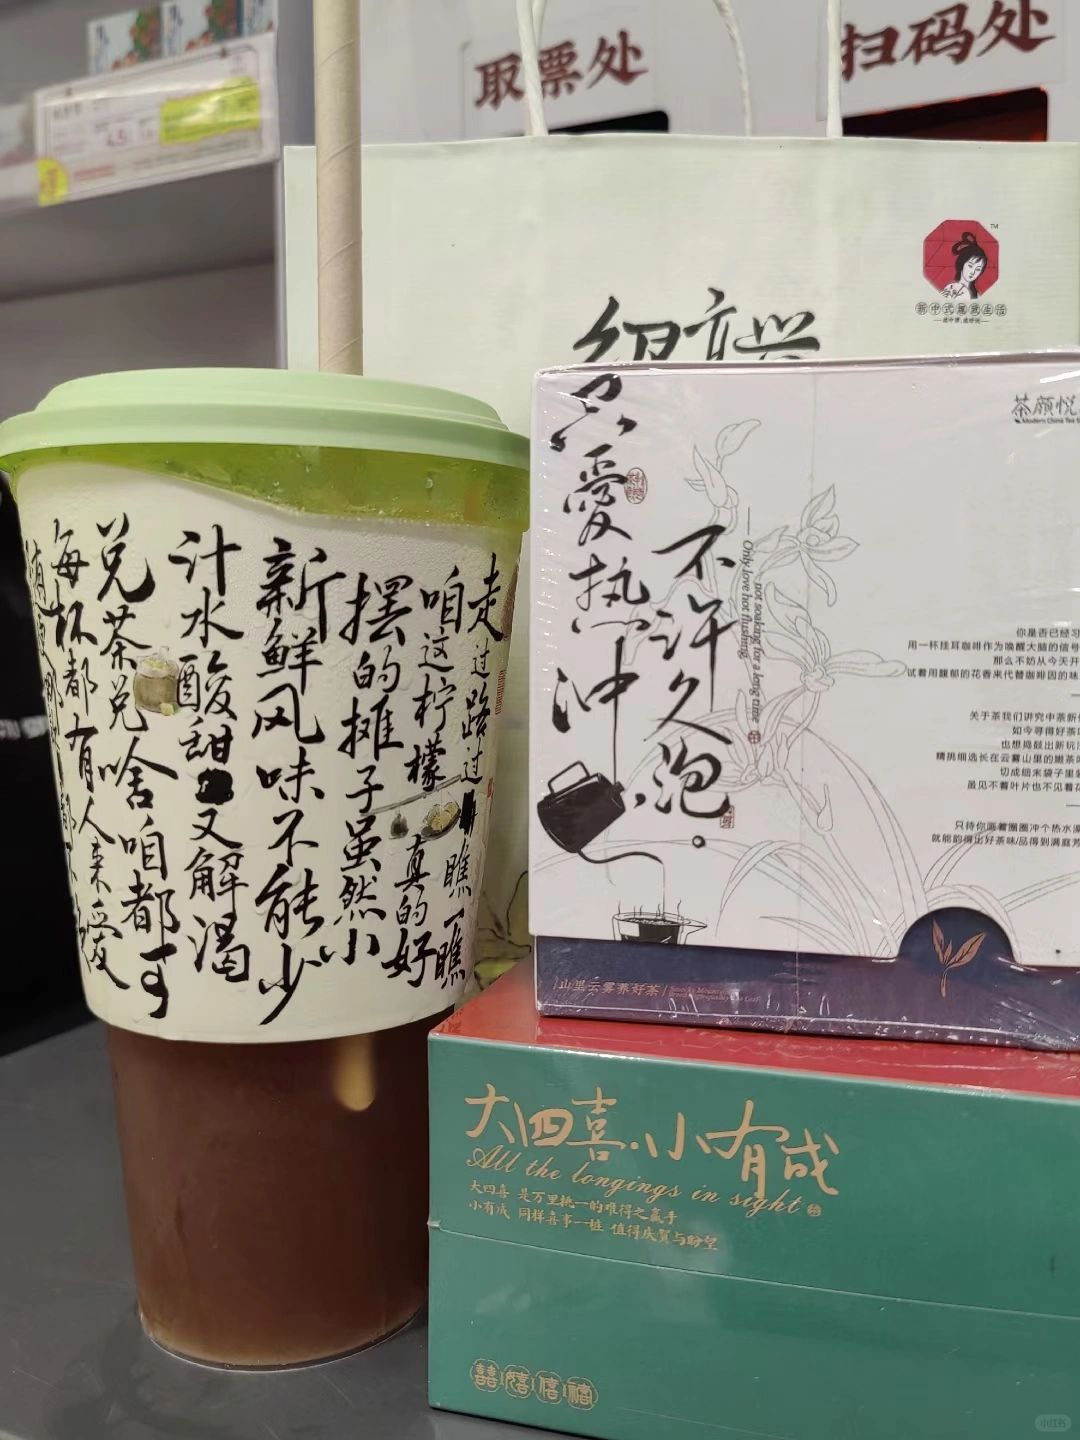 取票处
扫码处
新中式属意生活
只爱热冲
不许久泡。
Only love hot flushing
not soaking for a long time
茶颜悦
Modern China Tea
你是否已经习
用一杯挂耳咖啡作为唤醒大脑的信号
那么不妨从今天开
试着用馥郁的花香来代替咖啡因的味
关于茶我们讲究中茶新
如今寻得好茶
也想捣鼓出新玩
精挑细选长在云雾山里的嫩茶
切成细末袋子里
虽见不着叶片也不见着花
只待你画着圈圈冲个热水澡
就能韵得出好茶味/品得到满庭芳
山里云雾养好茶
走过路过瞧一瞧
咱这柠檬真的好
摆的摊子虽然小
新鲜风味不能少
汁水酸甜又解渴
兑茶兑啥咱都可
每杯都有人来爱
大四喜·小有成
All the longings in sight
大四喜 是万里挑一的难得之赢手
小有成 同样喜事一桩 值得庆贺与盼望
小红书